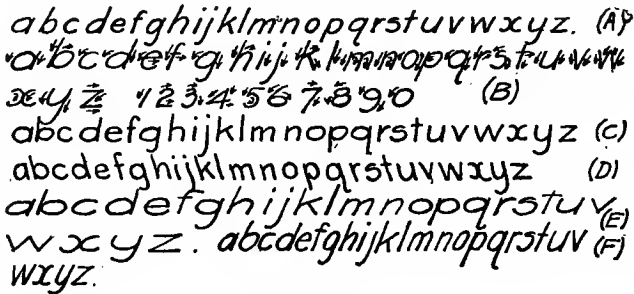 abcdefghijklmnopqrstuvwxyz. (A)
abcdefghijklmnopqrstuvw
xyz 1234567890 (B)
abcdefghijklmnopqrstuvwxyz (C)
abcdefghijklmnopqrstuvwxyz (D)
abcdefghijklmnopqrstuv (E)
wxyz. abcdefghijklmnopqrstuv (F)
wxyz.